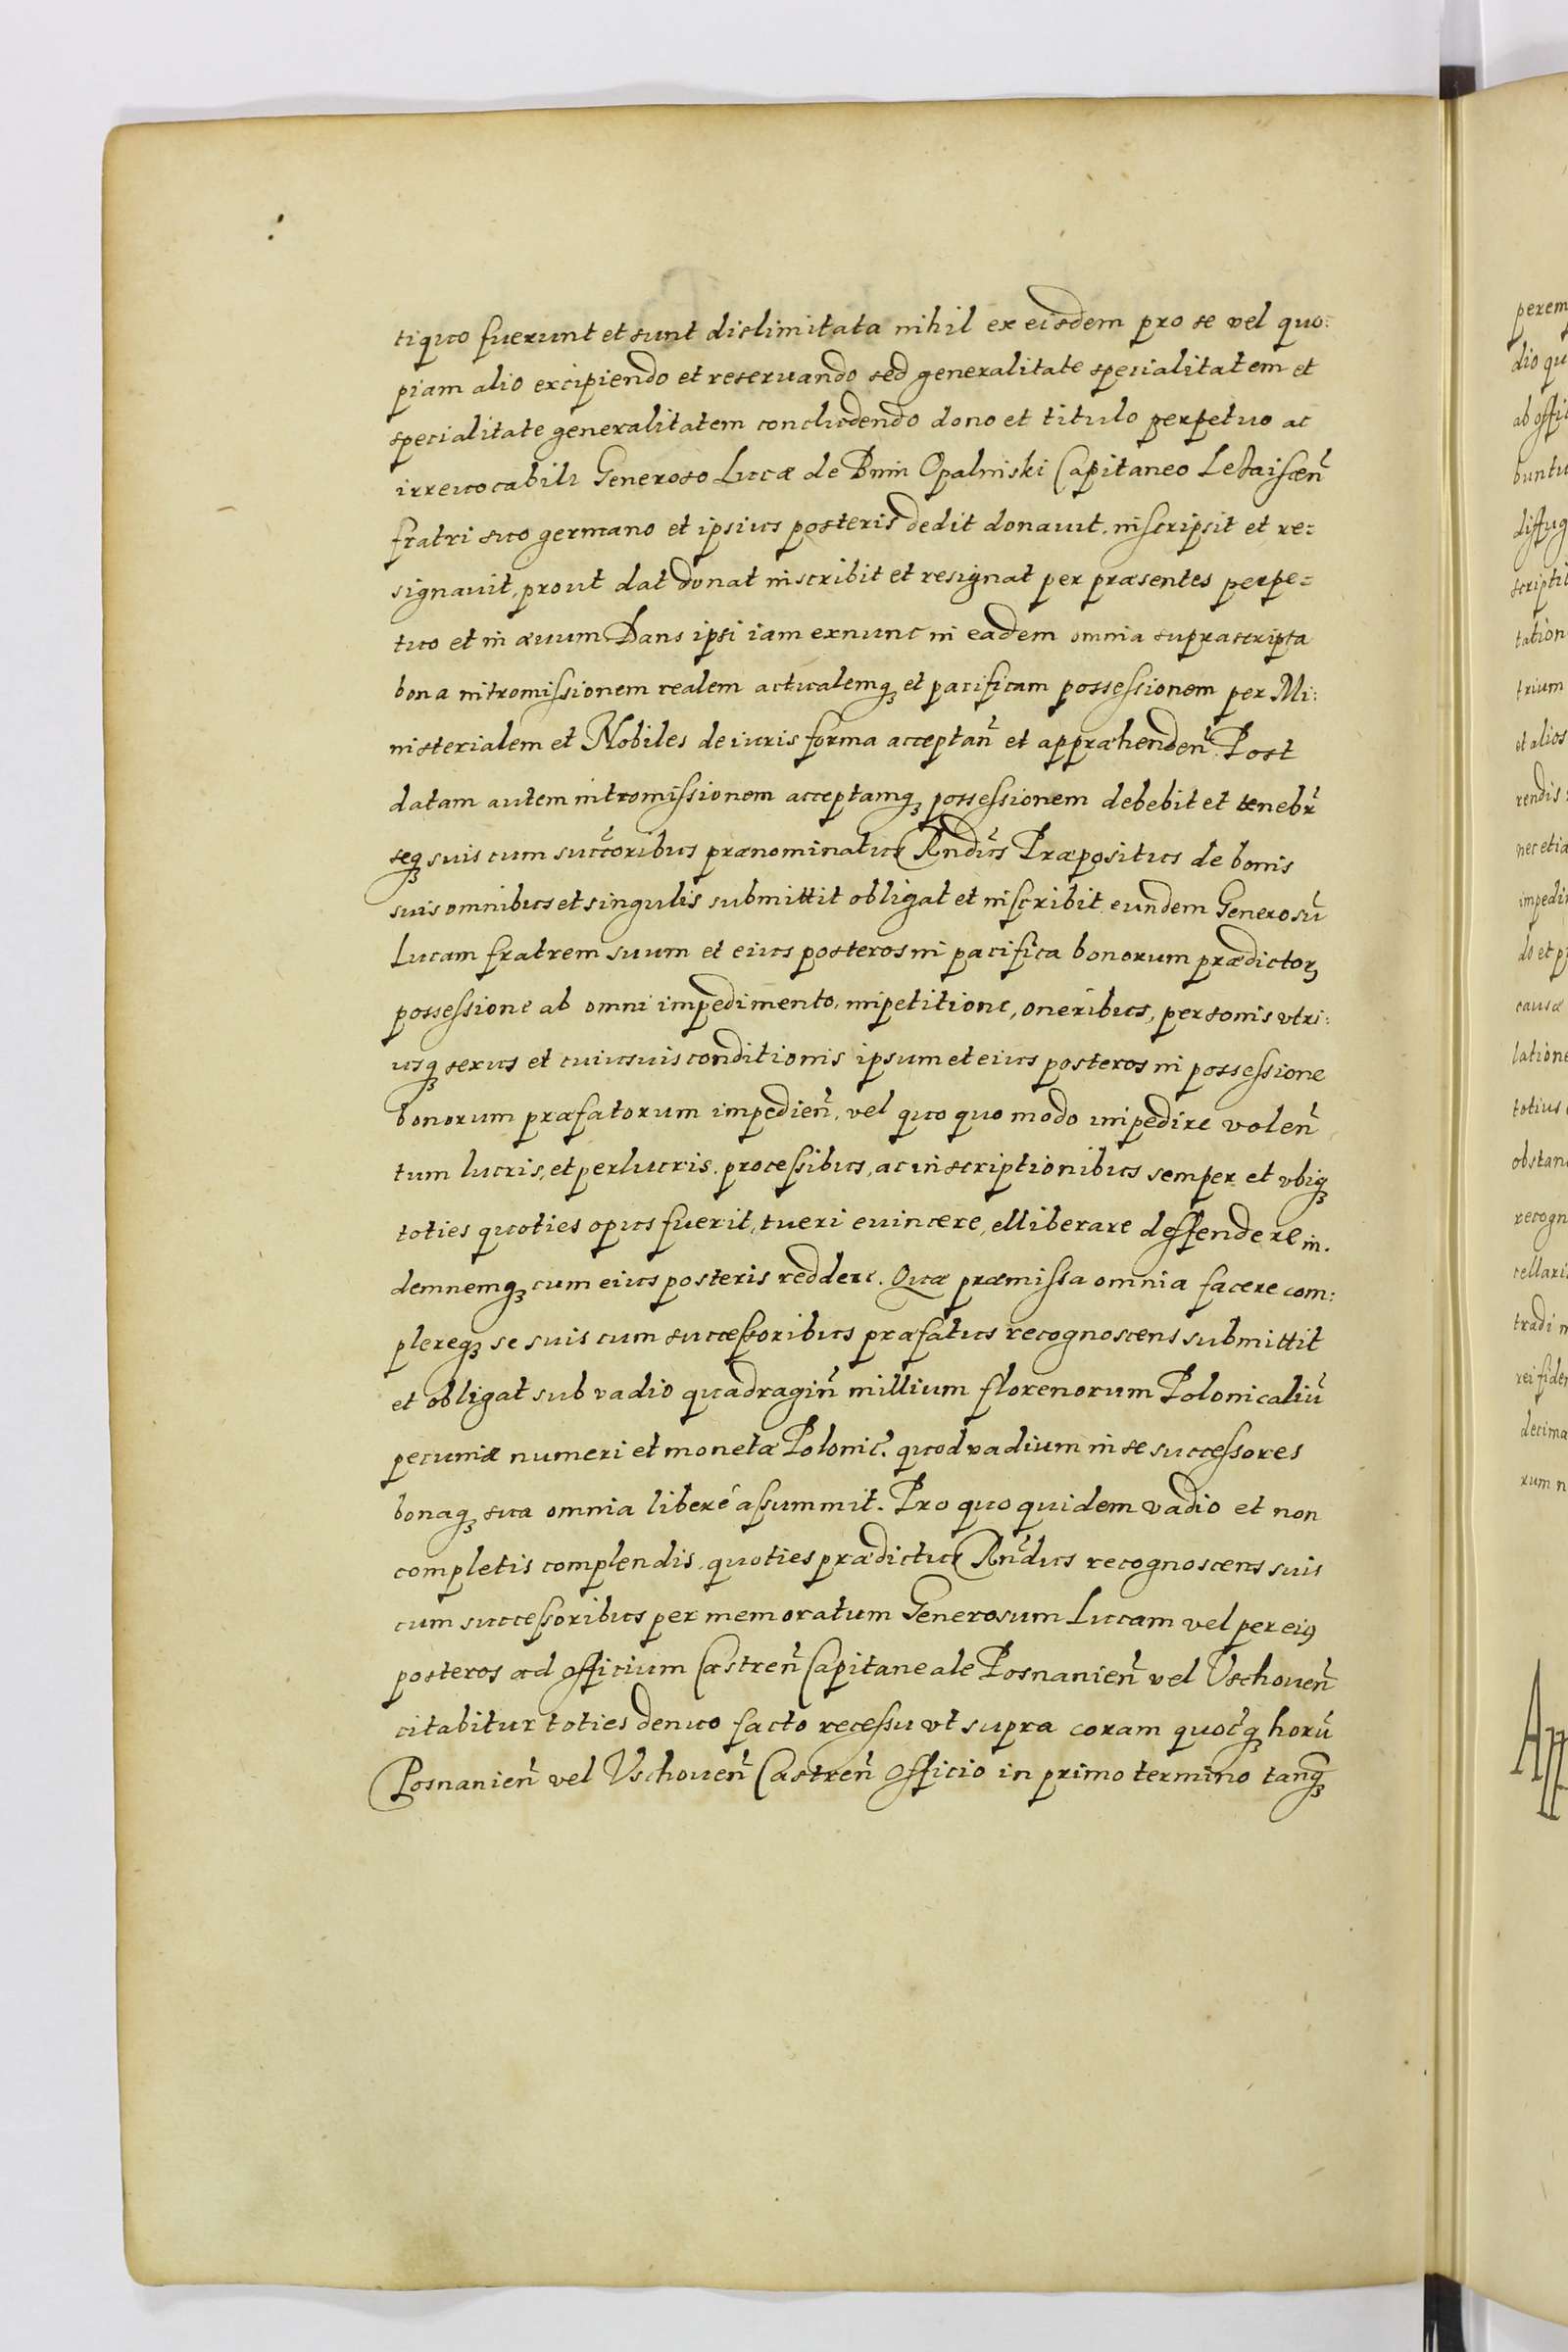 tiquo fuerunt et sunt dislimitata nihil ex eisdem pro se vel quo:
piam alio excipiendo et reseruando sed generalitate specialitatem et
specialitate generalitatem concludendo dono et titulo perpetuo ac
irreuocabili Generoso Lucæ de Bnin Opalinski Capitaneo Lezaiscen̄
fratri suo germano et ipsius posteris dedit donauit, inscripsit et re:
signauit, prout dat donat inscribit et resignat per præsentes perpe=
tuo et in æuum Dans ipsi iam exnunc in eadem omnia suprascripta
bona intromissionem realem actualemq3 et pacificam possessionem per Mi:
nisterialem et Nobiles de iuris forma acceptan̄ et appræhenden̄. Post
datam autem intromissionem acceptamq3 possessionem debebit et tenebr̄
seq3 suis cum succ̄oribus prænominatus Rnd̄us Præpositus de bonis
suis omnibus et singulis submittit obligat et inscribit eundem Generosū
Lucam fratrem suum et eius posteros in pacifica bonorum prædictoꝝ
possessione ab omni impedimento, impetitione, oneribus, personis vtri:
usq3 sexus et cuiusuis conditionis ipsum et eius posteros in possessione
bonorum præfatorum impedien̄, vel quo quo modo impedire volen̄
tum lucris, et perlucris, processibus, ac inscriptionibus semper et vbiq3
toties quoties opus fuerit, tueri euincere, elliberare deffendere in.
demnemq3 cum eius posteris reddere. Quæ præmissa omnia facere com:
plereq3 se suis cum successoribus præfatus recognoscens submittit
et obligat sub vadio quadragin̄ millium florenorum Polonicaliū
pecuniæ numeri et monetæ Polonic̄. quod vadium in se successores
bonaq3 sua omnia liberé assummit. Pro quo quidem vadio et non
completis complendis, quoties prædictus Rn̄dus recognoscens suis
cum successoribus per memoratum Generosum Lucam vel per eiꝰ
posteros ad officium Castren̄ Capitaneale Posnanien̄ vel Vschouen̄
citabitur toties denuo facto recessu vt supra coram quoc̄q3 horū
Posnanien̄ vel Vschouen̄ Castren̄ officio in primo termino tanq̄3